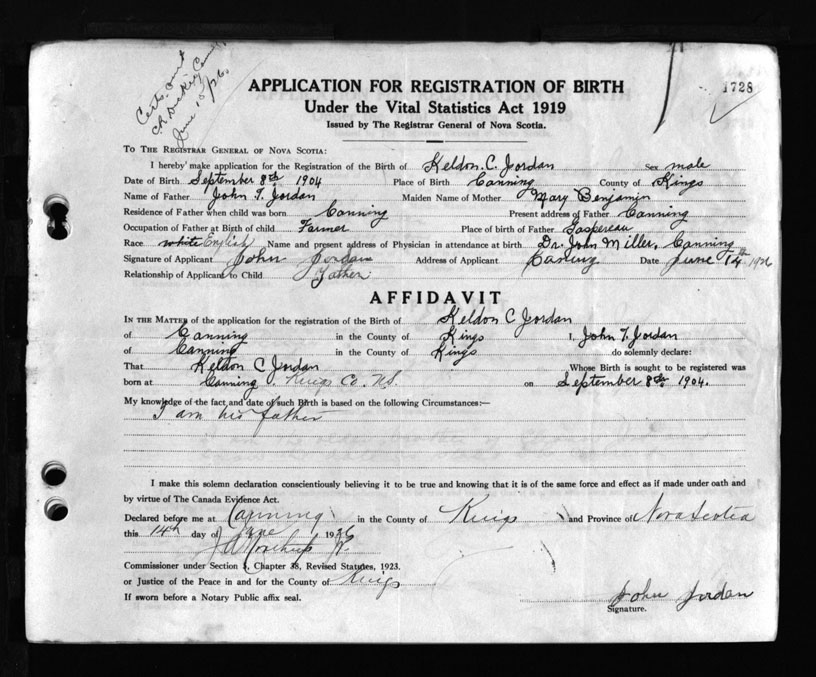 Certs. sent
June 15/26.
APPLICATION FOR REGISTRATION OF BIRTH
1728
Under the Vital Statistics Act 1919
Issued by The Registrar General of Nova Scotia.
To The Registrar General of Nova Scotia:
I hereby make application for the Registration of the Birth of Keldon. C. Jordan Sex male
Date of Birth September 8th 1904 Place of Birth Canning County of Kings
Name of Father John T. Jordan Maiden Name of Mother Mary Benjamin
Residence of Father when child was born Canning Present address of Father Canning
Occupation of Father at Birth of child Farmer Place of birth of Father Gaspereau
Race white English Name and present address of Physician in attendance at birth Dr. John Miller, Canning
Signature of Applicant John Jordan Address of Applicant Canning Date June 14th 1926
Relationship of Applicant to Child Father
AFFIDAVIT
In the Matter of the application for the registration of the Birth of Keldon C Jordan
of Canning in the County of Kings I, John T. Jordan
of Canning in the County of Kings do solemnly declare:
That Keldon C Jordan Whose Birth is sought to be registered was
born at Canning Kings Co. N.S. on September 8th 1904.
My knowledge of the fact and date of such Birth is based on the following Circumstances:—
I am his father
I make this solemn declaration conscientiously believing it to be true and knowing that it is of the same force and effect as if made under oath and
by virtue of The Canada Evidence Act.
Declared before me at Canning in the County of Kings and Province of Nova Scotia
this 14th day of June 1926
Commissioner under Section 3, Chapter 38, Revised Statutes, 1923.
or Justice of the Peace in and for the County of Kings
If sworn before a Notary Public affix seal.
John Jordan
Signature.